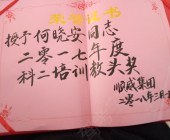 荣誉证书
授予何晓安同志
二零一七年度
科二培训教头奖
顺威集团
二零一八年二月